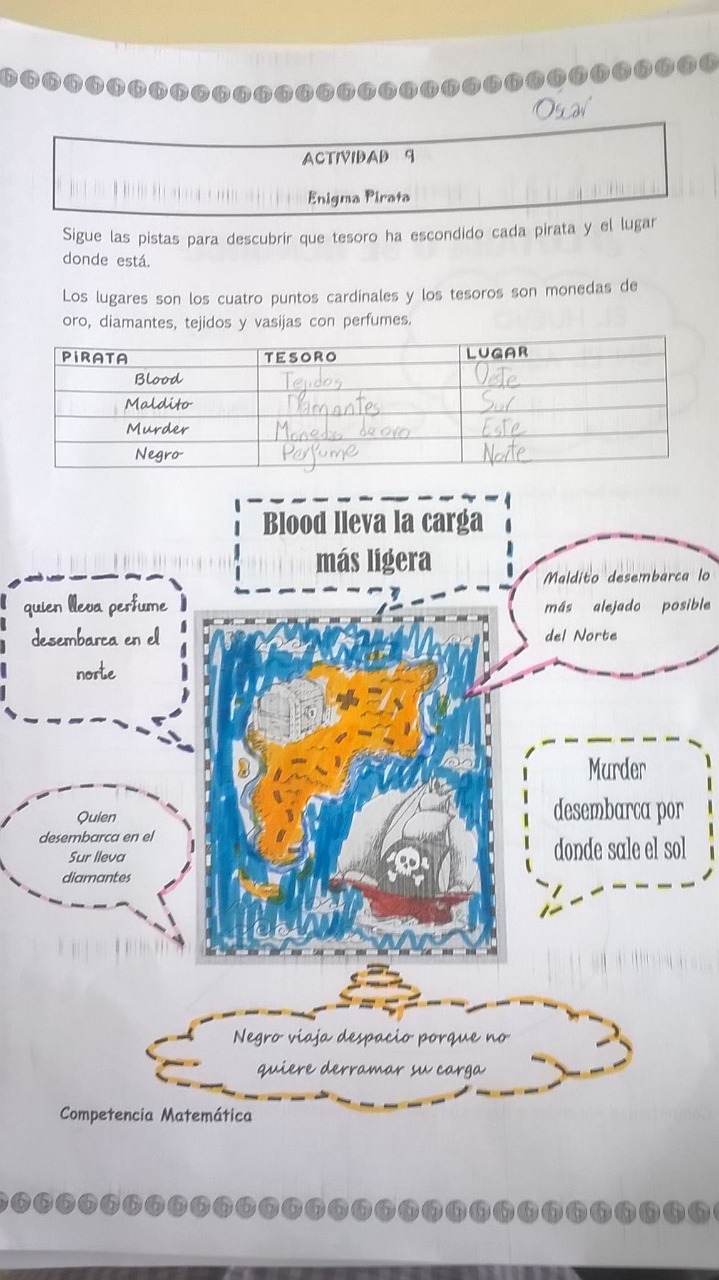 Óscar
ACTIVIDAD 9
Enigma Pirata
Sigue las pistas para descubrir que tesoro ha escondido cada pirata y el lugar
donde está.
Los lugares son los cuatro puntos cardinales y los tesoros son monedas de
oro, diamantes, tejidos y vasijas con perfumes.
PIRATA TESORO LUGAR
Blood Tejidos Oeste
Maldito Diamantes Sur
Murder Monedas de oro Este
Negro Perfume Norte
Blood lleva la carga
más ligera
quien lleva perfume
desembarca en el
norte
Maldito desembarca lo
más alejado posible
del Norte
Quien
desembarca en el
Sur lleva
diamantes
Murder
desembarca por
donde sale el sol
Negro viaja despacio porque no
quiere derramar su carga
Competencia Matemática